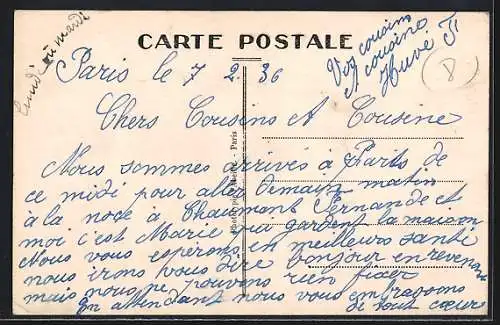 Lundi ou mardi
CARTE POSTALE
Vos cousins
et cousine
Huvé F
8
Paris le 7 2. 36
Chers Cousins et Cousine
Nous sommes arrivés à Paris de
ce midi pour aller demain matin
à la noce à Chaumont Fernande et
moi c'est Marie qui gardent la maison
Nous vous espérons en meilleurs santé
nous irons vous dire bonjour en revenant
mais nous ne pouvons rien fixer
En attendant nous vous embrassons
de tout cœur
Paris